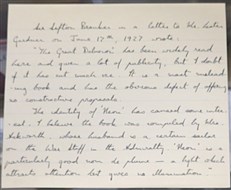 Sir Sefton Brancker in a letter to Mr. Lester
Gardner on June 17th, 1927 wrote:
'The Great Delusion' has been widely read
here and given a lot of publicity, but I doubt
if it has cut much ice. It is a most mislead-
ing book and has the obvious defect of offering
no constructive proposals.
The identity of 'Neon' has caused some inter-
est. I believe the book was compiled by Mrs.
Ackworth, whose husband is a certain sailor
on the War Staff in the Admiralty. 'Neon' is a
particularly good nom de plume — a light which
attracts attention but gives no illumination.